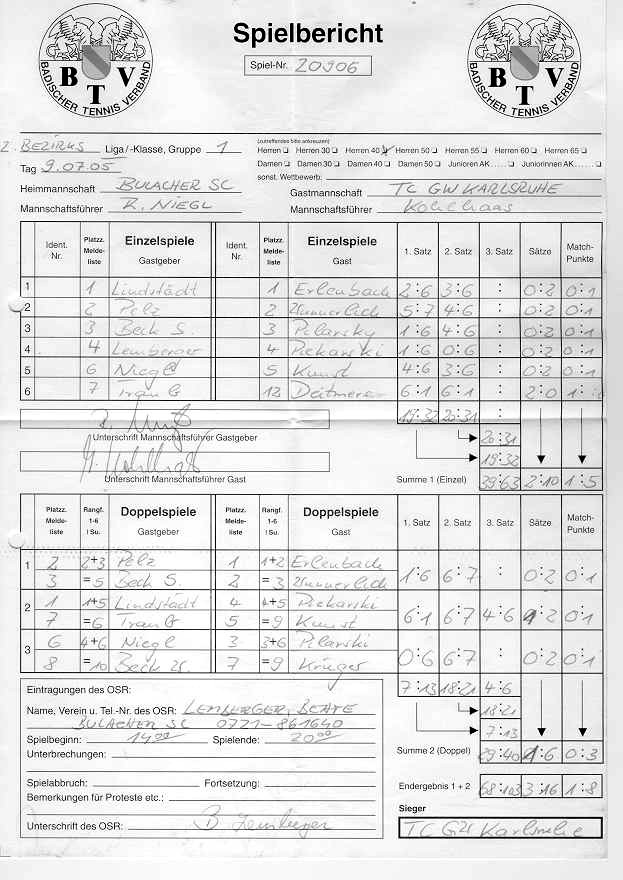 BADISCHER TENNIS VERBAND
BTV
Spielbericht
Spiel-Nr. 20906
BADISCHER TENNIS VERBAND
BTV
2. BEZIRKS Liga /-Klasse, Gruppe 1
(zutreffendes bitte ankreuzen)
Herren Herren 30 Herren 40 Herren 50 Herren 55 Herren 60 Herren 65
Damen Damen 30 Damen 40 Damen 50 Junioren AK..... Juniorinnen AK.....
Tag 9.07.05
sonst. Wettbewerb:
Heimmannschaft BULACHER SC
Gastmannschaft TC GW KARLSRUHE
Mannschaftsführer R. NIEGL
Mannschaftsführer Kohlhaas
Ident. Nr. Platzz. Melde- liste Einzelspiele Gastgeber Ident. Nr. Platzz. Melde- liste Einzelspiele Gast 1. Satz 2. Satz 3. Satz Sätze Match- Punkte
1 1 Lindstädt 1 Erlenbach 2:6 3:6 : 0:2 0:1
2 2 Pelz 2 Wunnerlich 5:7 4:6 : 0:2 0:1
3 3 Beck S. 3 Pilarsky 1:6 4:6 : 0:2 0:1
4 4 Lemberger 4 Piekarski 1:6 0:6 : 0:2 0:1
5 6 Niegl 5 Kunst 4:6 3:6 : 0:2 0:1
6 7 12 6:1 6:1 : 2:0 1:
19:32 20:31
Unterschrift Mannschaftsführer Gastgeber
20:31
19:32
Unterschrift Mannschaftsführer Gast
Summe 1 (Einzel) 39:63 2:10 1:5
Platzz. Melde- liste Rangf. 1-6 / Su. Doppelspiele Gastgeber Platzz. Melde- liste Rangf. 1-6 / Su. Doppelspiele Gast 1. Satz 2. Satz 3. Satz Sätze Match- Punkte
1 2 2+3 Pelz 1 1+2 Erlenbach
3 =5 Beck S. 2 =3 Wunnerlich 1:6 6:7 : 0:2 0:1
2 1 1+5 Lindstädt 4 4+5 Piekarski
7 =6 5 =9 Kunst 6:1 6:7 4:6 1:2 0:1
3 6 4+6 Niegl 3 3+6 Pilarski
8 =10 Beck 7 =9 Krüger 0:6 6:7 : 0:2 0:1
7:13 18:21 4:6
Eintragungen des OSR:
Name, Verein u. Tel.-Nr. des OSR: LEMBERGER, BEATE
18:21
BULACHER SC 0721-861640
7:13
Spielbeginn: 14⁰⁰ Spielende: 20⁰⁰
Summe 2 (Doppel) 29:40 1:6 0:3
Unterbrechungen:
Spielabbruch: Fortsetzung:
Endergebnis 1 + 2 68:103 3:16 1:8
Bemerkungen für Proteste etc.:
Sieger
Unterschrift des OSR: B. Lemberger
TC GW Karlsruhe